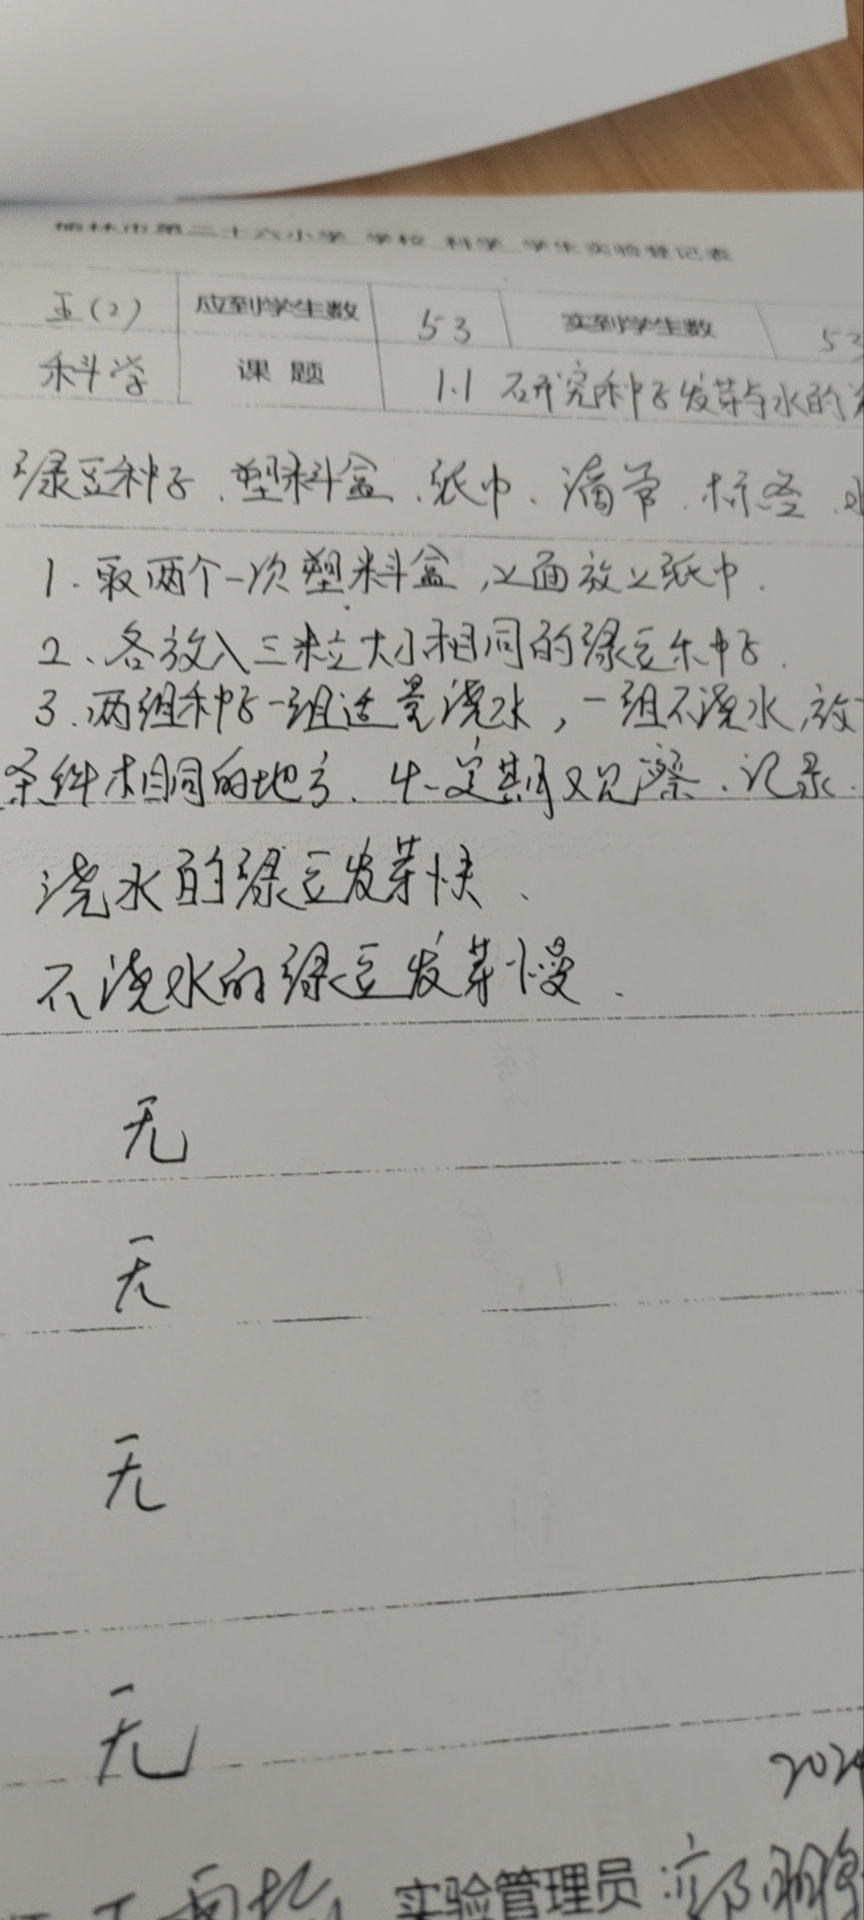 榆林市第二十六小学 学校 科学 学生实验登记表
五(2) 应到学生数 53 实到学生数 53
科学 课 题 1.1 研究种子发芽与水的
绿豆种子、塑料盒、纸巾、滴管、标签、
1.取两个一次塑料盒,上面放上纸巾.
2、各放入三粒大小相同的绿豆种子.
3.两组种子一组适量浇水,一组不浇水,放
条件相同的地方.4.定期观察、记录.
浇水的绿豆发芽快、
不浇水的绿豆发芽慢.
无
无
无
无
202
实验管理员